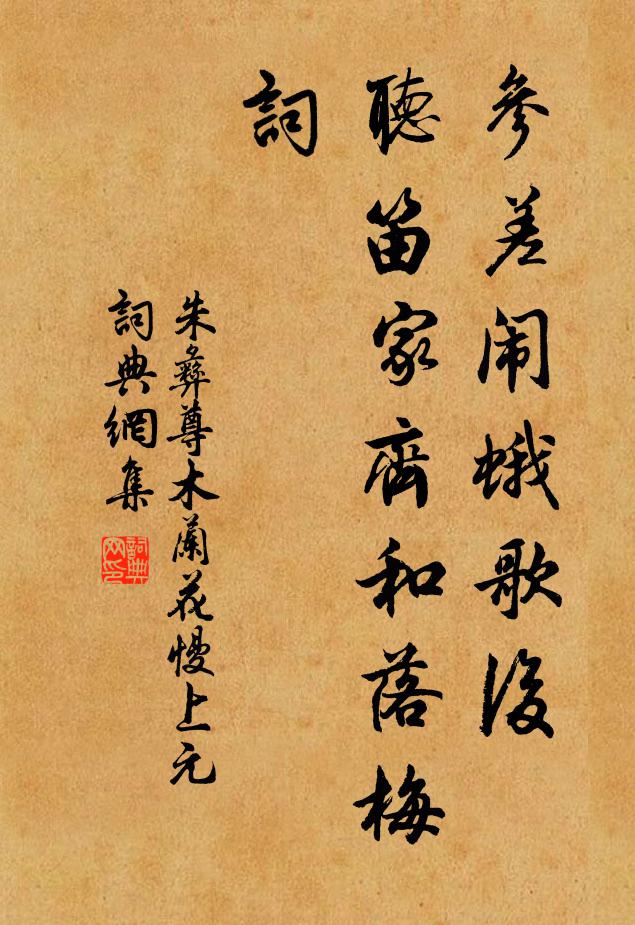 參差闹蛾歌後
聽笛家齊和落梅
詞
朱彝尊木蘭花慢上元
詞典網集
詞典
网印